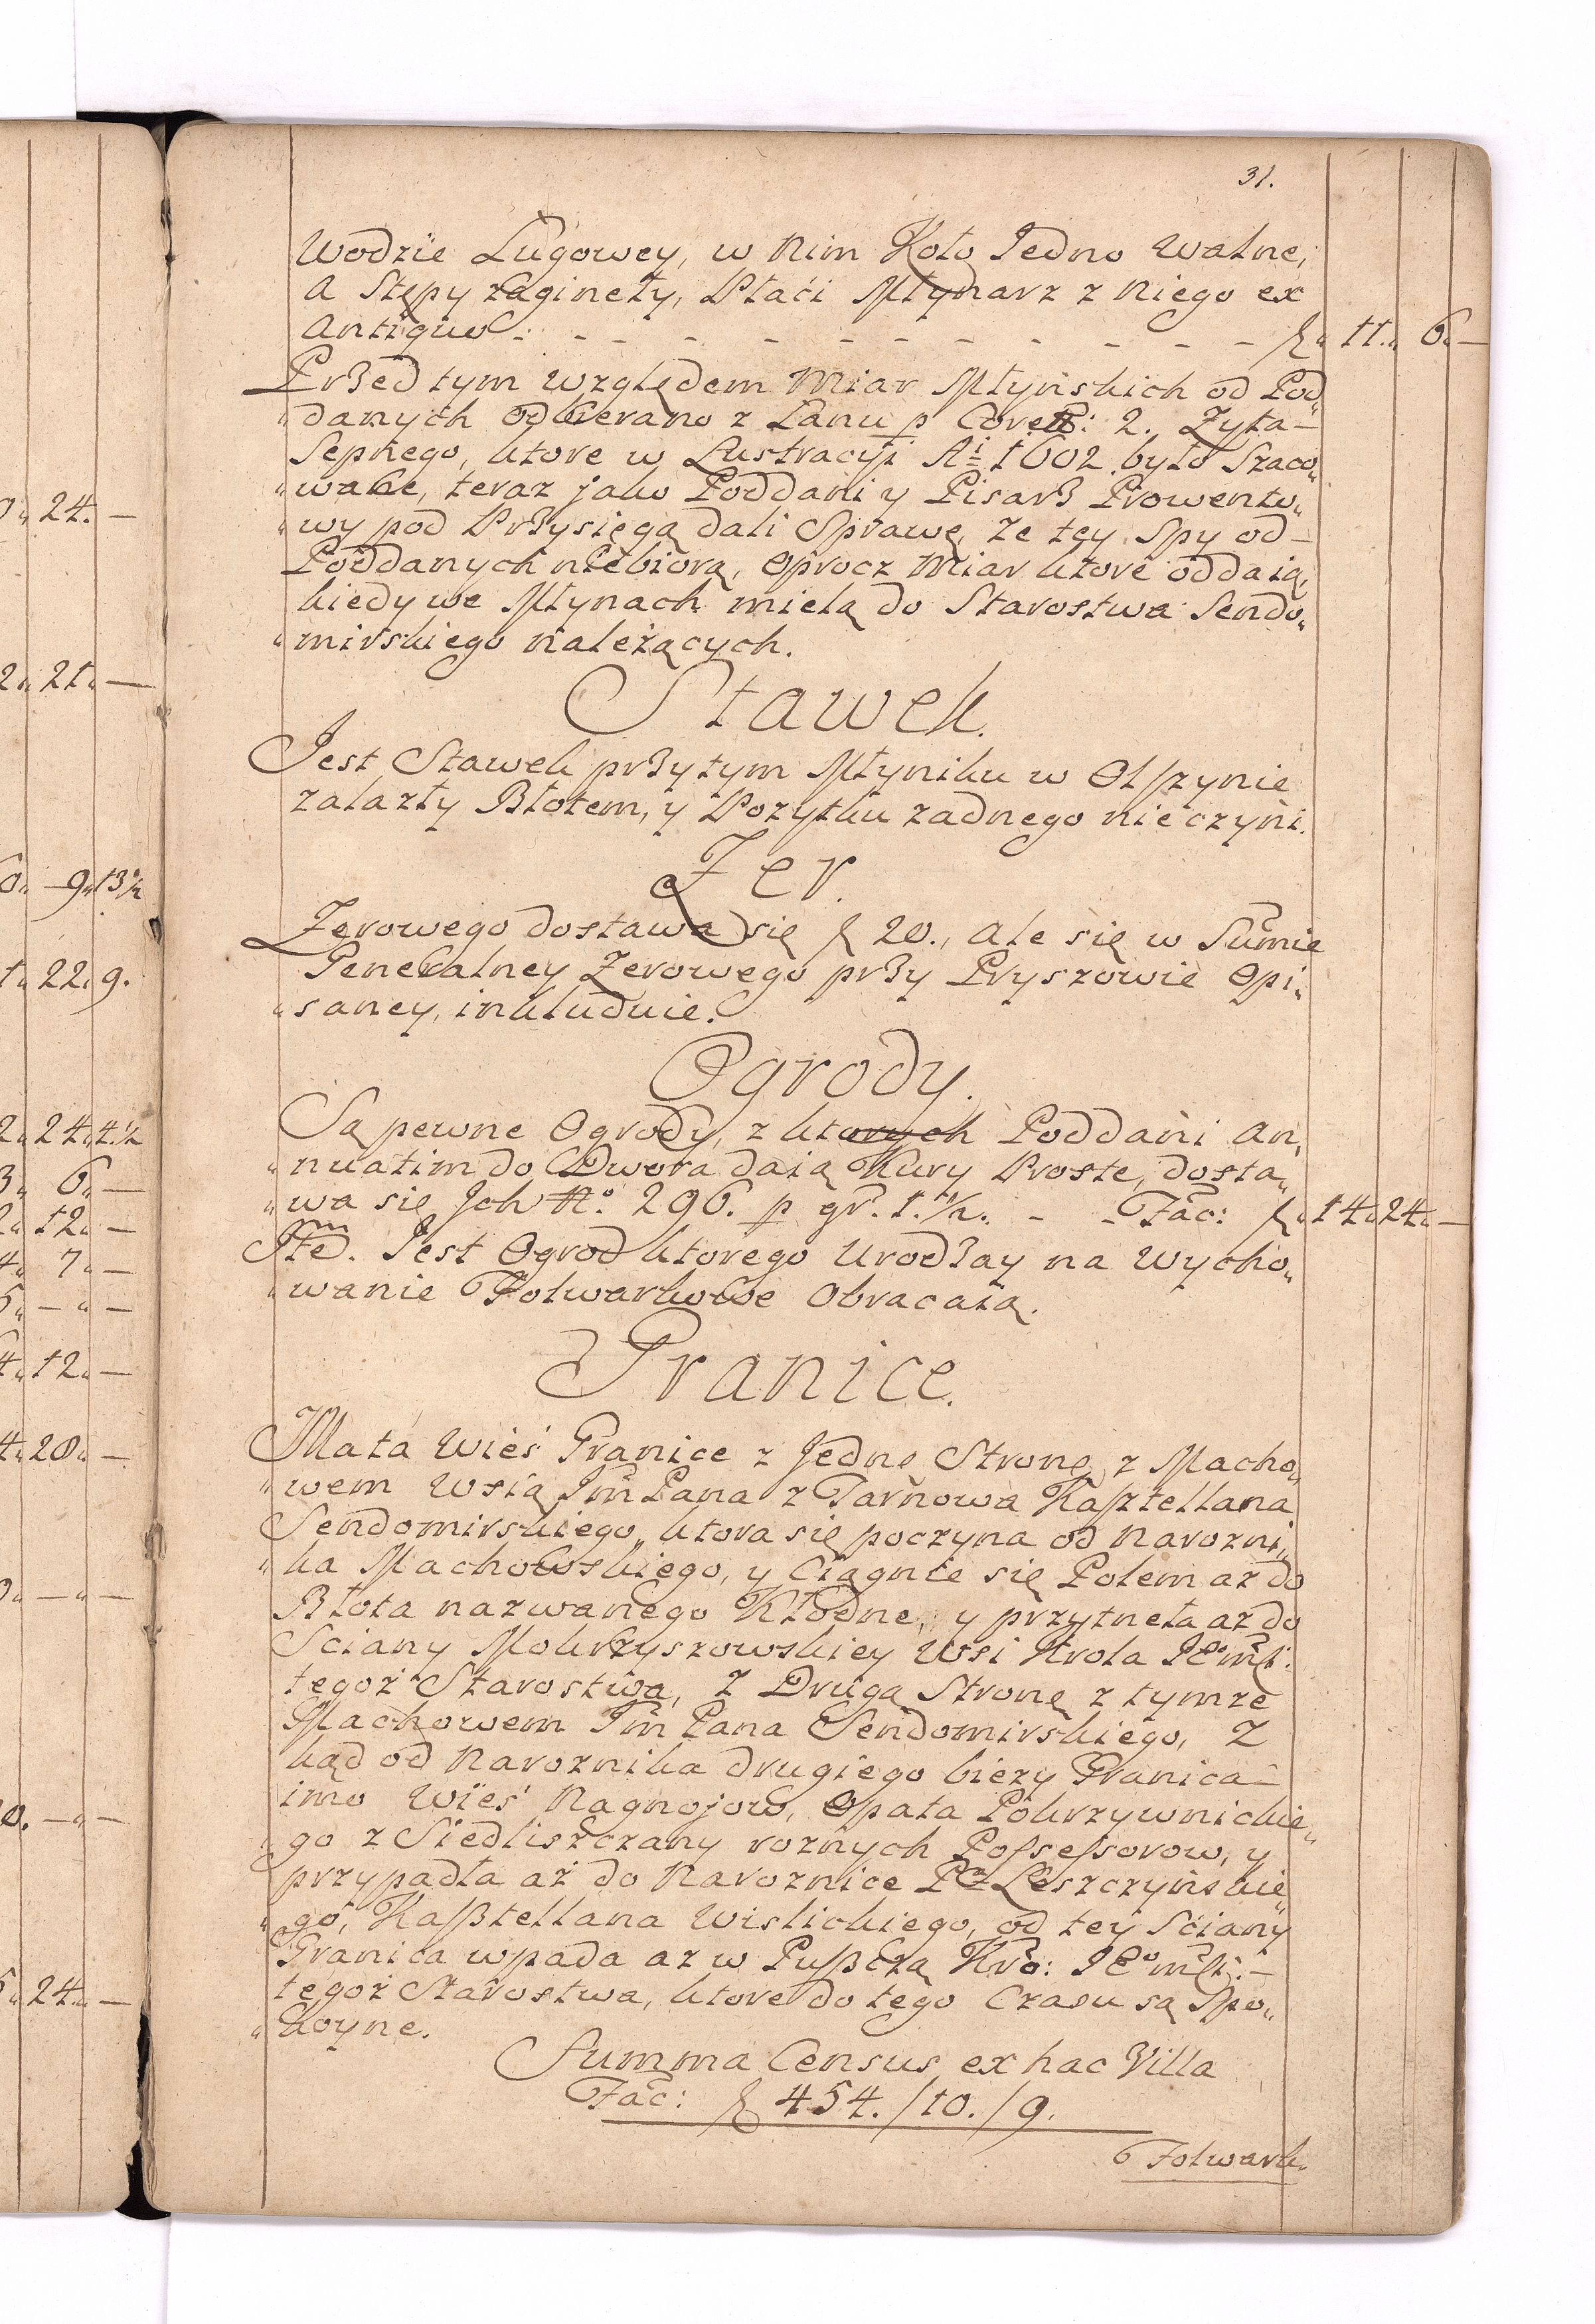 31.
Wodzie Ługowey, w Nim Koło Jedno Walne,
A Stępy zagineły, Płaci Młynarz z Niego ex
Antiquo - - - - - - - - - - - f" 11." 6" —
Przed tym względem Miar Młyńskich od Pod"
"danych odbierano z Łanu p Coret: 2. Żyta —
Sepnego, ktore w Lustracyi Ai 1602 było Szaco"
"wane, teraz jako Poddani y Pisarz Prowento"
"wy pod Przysięgą dali Sprawę, że tey Spy od —
Poddanych niebiorą, oprocz Miar ktore oddaią,
kiedy we Młynach mielą do Starostwa Sendo"
"mirskiego należących.
Stawek.
Jest Stawek przytym Młyniku w Olszynie
zalazły Błotem, y Pozytku zadnego nie czyni.
Żer.
Żerowego dostawa się f 20., Ale się w Sumie
Generalney Żerowego przy Pryszowie Opi"
"saney, inkluduie.
Ogrody.
Są pewne Ogrody, z ktorych Poddani An"
"nuatim do Dwora daią Kury Proste, dosta"
"wa się Jch No. 296. p gr. 1.½. - - Fac: f" 14" 24" —
Jtm. Jest Ogrod ktorego Urodzay na Wycho"
"wanie Folwarkowe Obracaią.
Granice.
Mata Wieś Granice z Jedne Stronę z Macho"
"wem Wsią Jm Pana z Tarnowa Kasztellana
Sendomirskiego, ktora się poczyna od Narozni"
"ka Machowskiego, y Ciągnie się Polem aż do
Błota nazwanego Kłodne, y przytneła aż do
Sciany Mokrzyszowskiey Wsi Krola JeoMści
tegoż Starostwa, Z Drugą Stronę z tymze
Machowem Jm Pana Sendomirskiego, Z
kąd od Naroznika drugiego biezy Granica —
imo Wieś Nagnojow, Opata Pokrzywnickie"
go z Siedliszczany roznych Possessorow, y
przypadła aż do Naroznice P. Leszczyńskie"
"go, Kasztellana Wislickiego, od tey Sciany
Granica wpada az w Puszczą Kro: JeoMści —
tegoż Starostwa, ktore do tego Czasu są Spo"
"koyne.
Summa Census ex hac Villa
Fac: f 454./10./9.
Folwark"